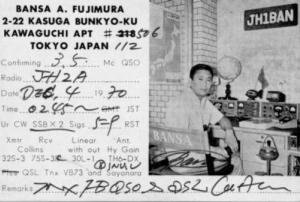 BANSA A. FUJIMURA
2-22 KASUGA BUNKYO-KU
KAWAGUCHI APT # 218 506
TOKYO JAPAN 112
JH1BAN
Confirming 3.5 Mc QSO
Radio JH2A
Date Dec, 4 1970
Time 0245~ GMT JST
Ur CW SSB×2 Sigs 5-9 RST
Xmtr Rcv Linear Ant.
Collins with out Hy Gain
32S-3 75S-3 30L-1 TH6-DX
BANSA
Plse QSL. Tnx VB73 and Sayonara
Remarks Tnx FB QSO & QSL